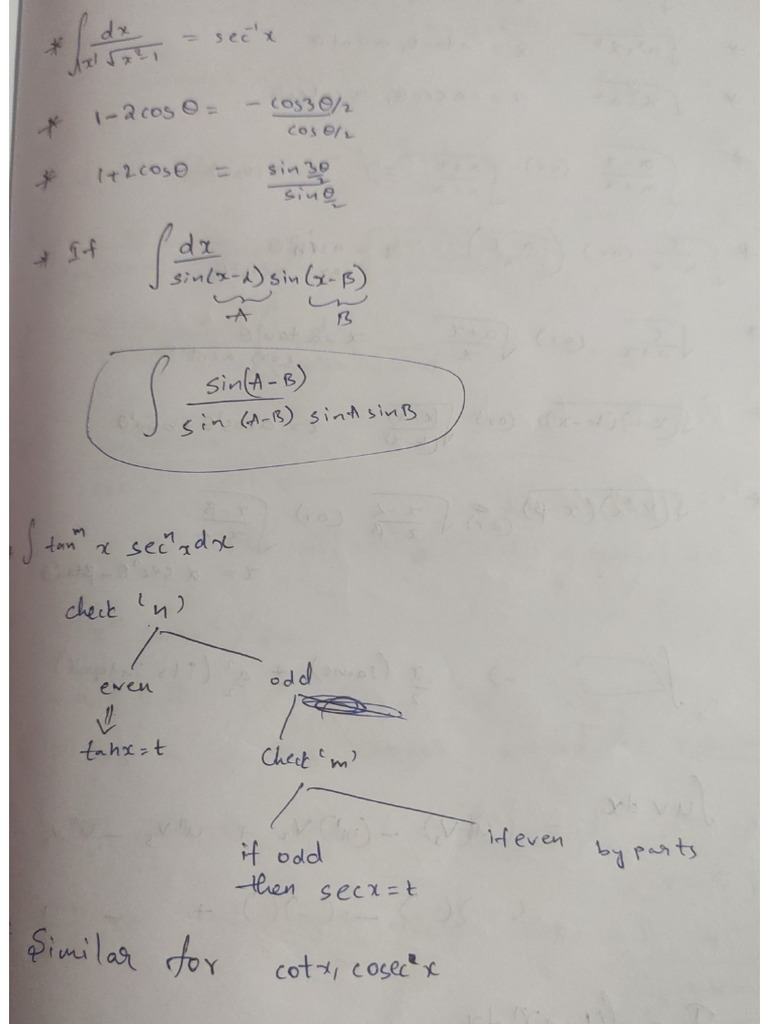 * ∫ dx / |x| √x²-1 = sec⁻¹x
* 1-2cosθ = - cos3θ/2 / cosθ/2
* 1+2cosθ = sin 3θ/2 / sin θ/2
* If ∫ dx / sin(x-α) sin(x-β)
A B
∫ sin(A-B) / sin (A-B) sinA sinB
∫ tanᵐ x secⁿ x dx
check 'n'
even odd
⇓
tanx = t Check 'm'
if odd if even by parts
then secx = t
Similar for cotx, cosec²x